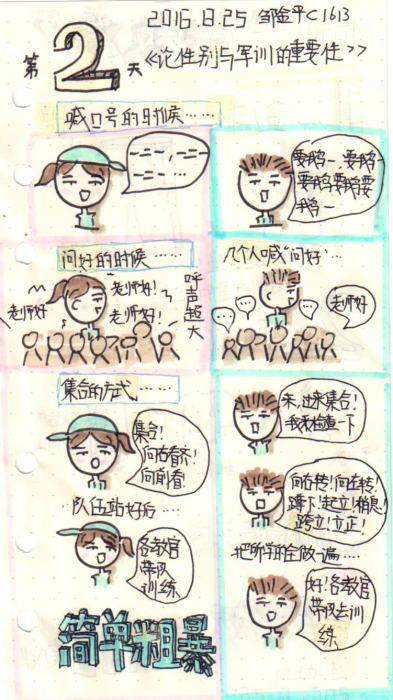 2016.8.25 邹金平C1613
第2天 《论性别与军训的重要性》
喊口号的时候……
一二一,一二一
一二一…
要鹅一、要鹅一
要鹅要鹅要
鹅一
问好的时候……
老师好
老师好!
老师好!
呼声超大
几个人喊"问好"…
…
…
…
老师好
集合的方式……
集合!
向右看齐!
向前看
队伍站好后……
各教官
带队
训练
简单粗暴
来,过来集合!
我来检查一下
向右转!向左转!
蹲下!起立!稍息!
跨立!立正!
把所学的全做一遍……
好!各教官
带队去训
练